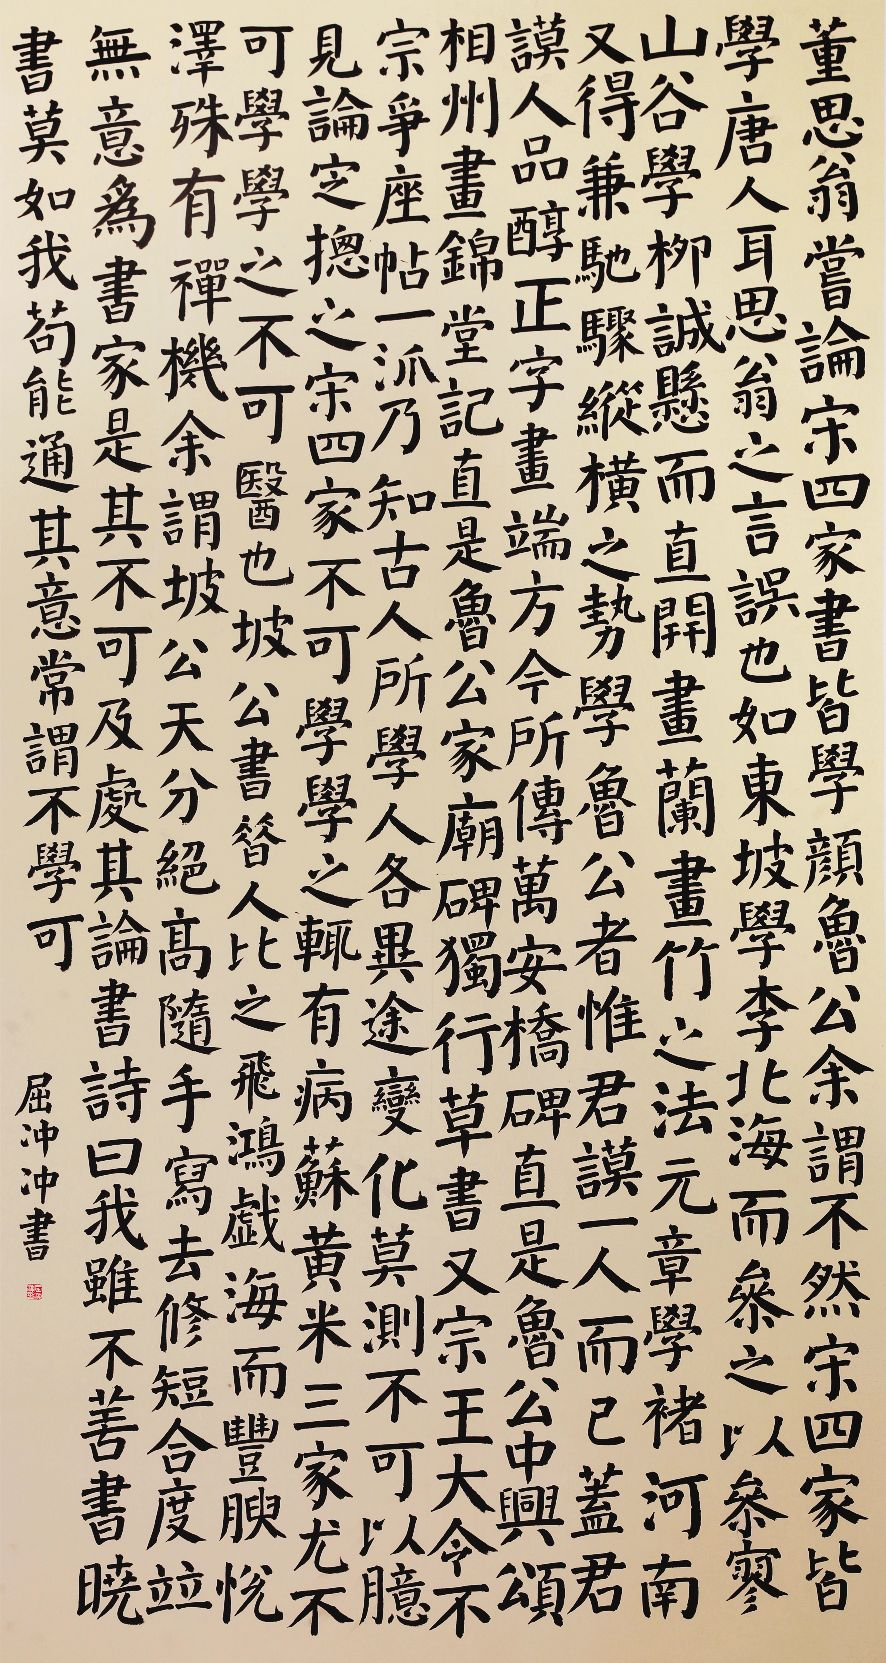 董思翁嘗論宋四家書皆學顏魯公余謂不然宋四家皆
學唐人耳思翁之言誤也如東坡學李北海而參之以參寥
山谷學柳誠懸而直開畫蘭畫竹之法元章學褚河南
又得兼馳驟縱橫之勢學魯公者惟君謨一人而已蓋君
謨人品醇正字畫端方今所傳萬安橋碑直是魯公中興頌
相州畫錦堂記直是魯公家廟碑獨行草書又宗王大令不
宗爭座帖一派乃知古人所學人各異途變化莫測不可以臆
見論定摠之宋四家不可學學之輒有病蘇黃米三家尤不
可學學之不可醫也坡公書昝人比之飛鴻戲海而豐腴悅
澤殊有禪機余謂坡公天分絕高隨手寫去修短合度竝
無意為書家是其不可及處其論書詩曰我雖不善書曉
書莫如我苟能通其意常謂不學可
屈沖沖書